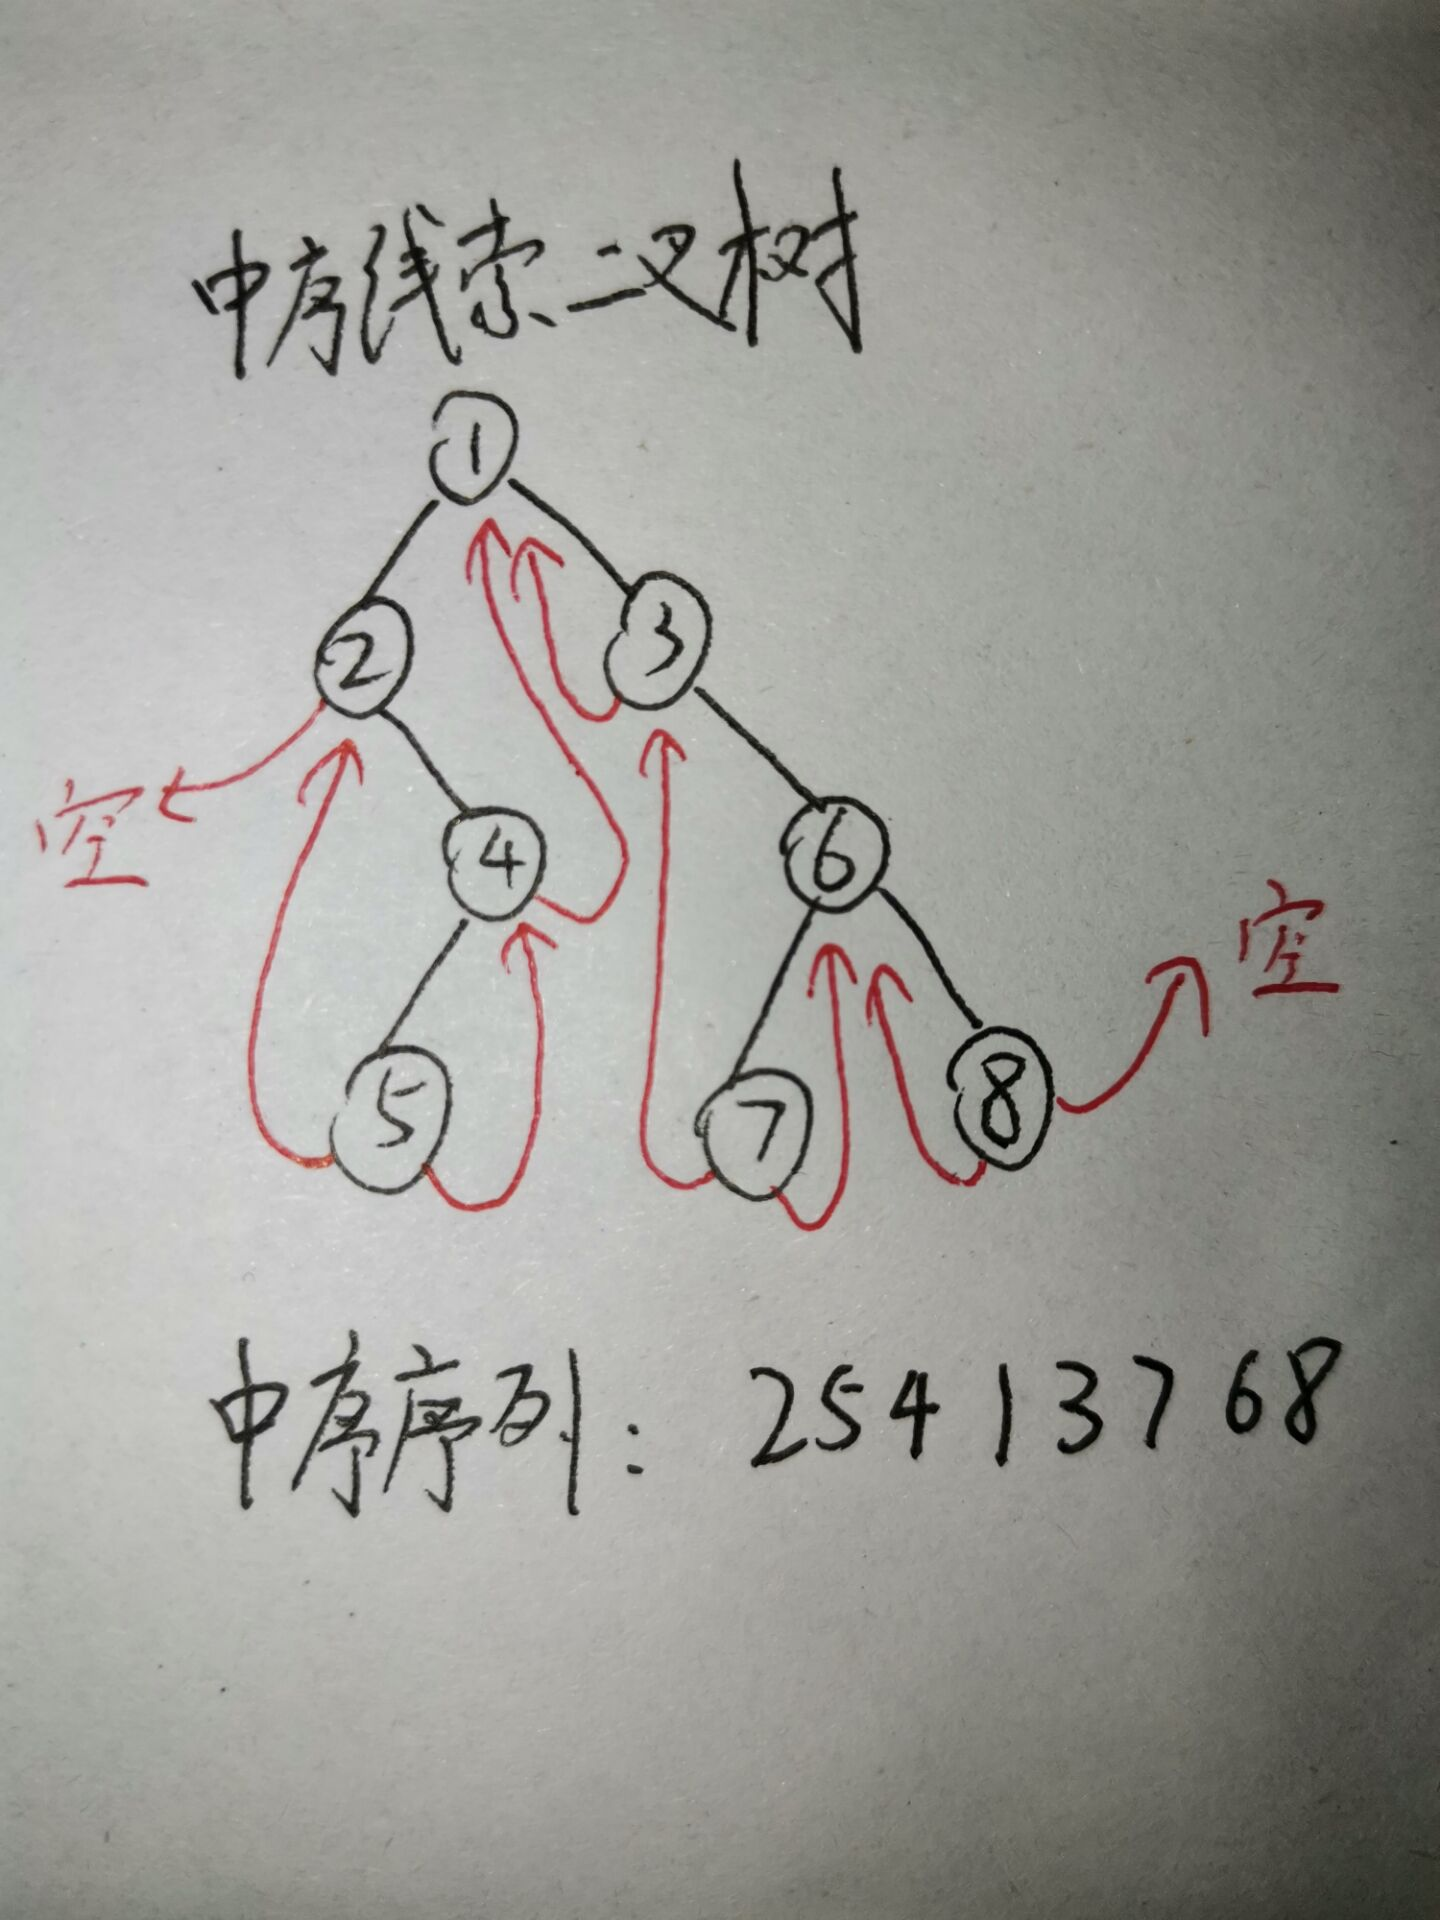 中序线索二叉树
1
2 3
空
4 6
空
5 7 8
中序序列: 25413768